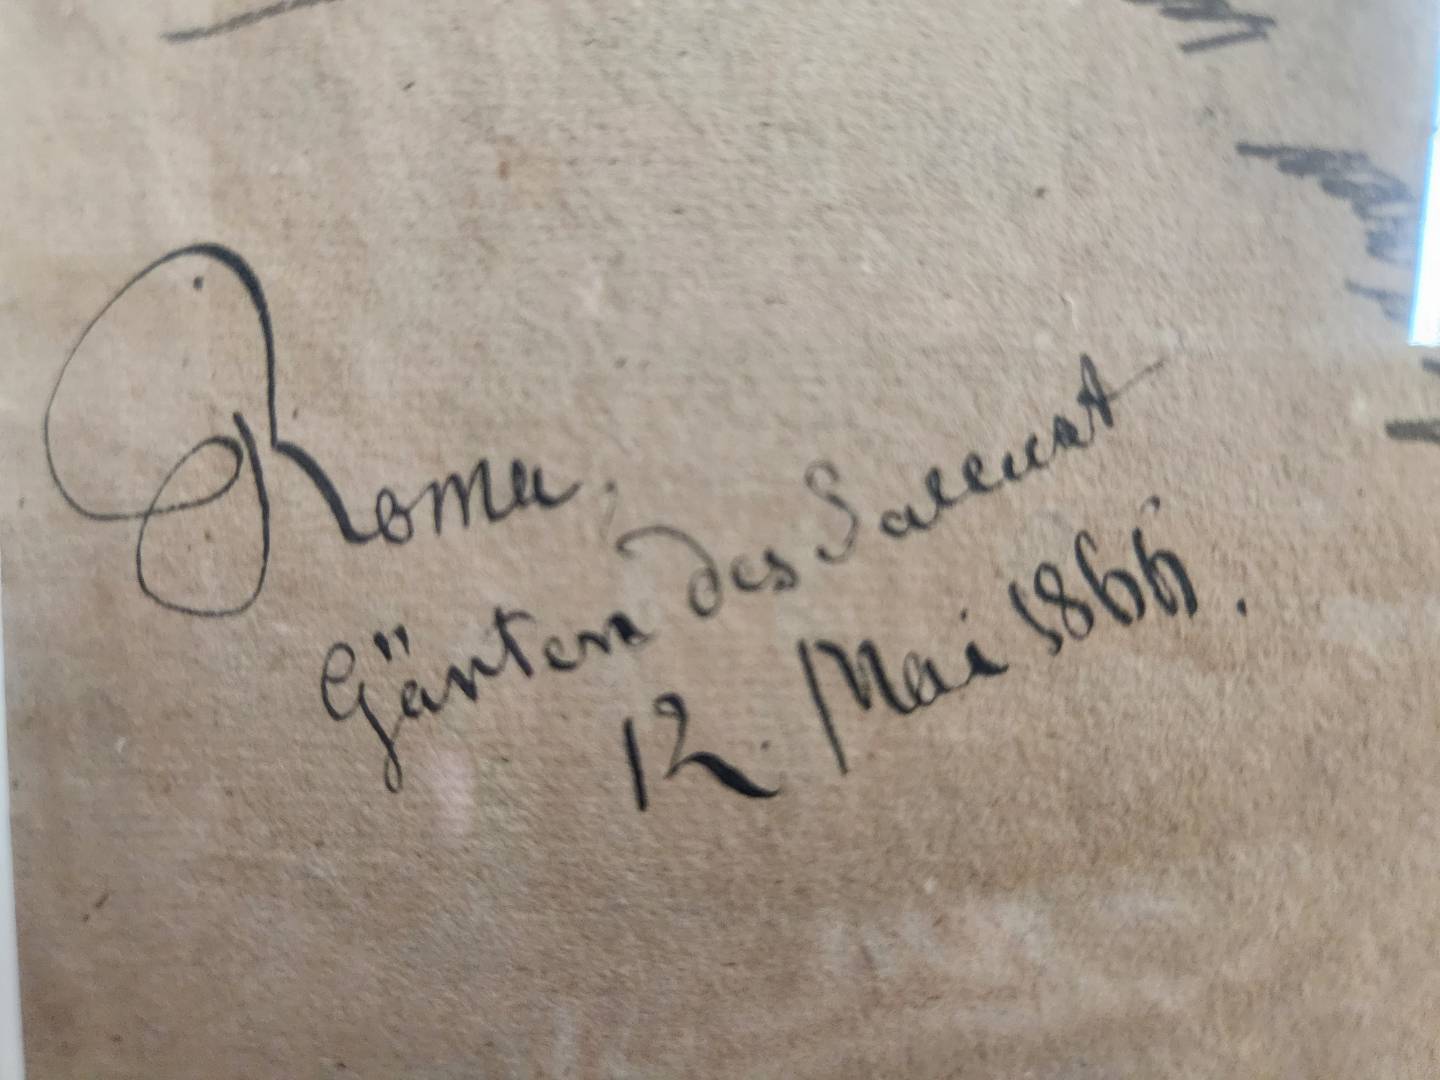 Roma,
Gärten des Sallust
12. Mai 1866.